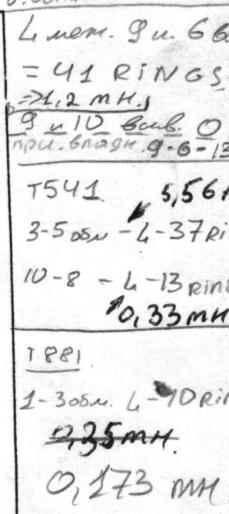 L меж. 9 и 6 вы
= 41 RINGS
=> 1,2 mH.
9 и 10 вывв. 0
при. впадн. 9-6-13
T541. 5,56
3-5 обм - L - 37 Ri
10-8 - L - 13 RIN
0,33 mH
T881
1-3 обм. L - 10 Ri
0,35 mH.
0,173 mH